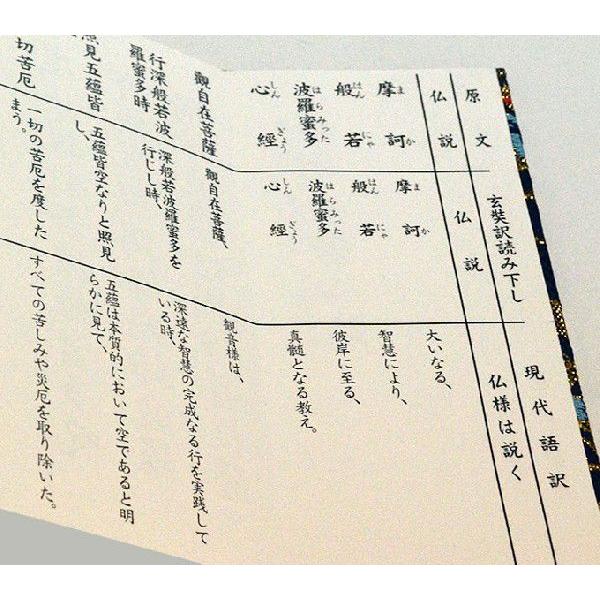 原文
仏説
摩訶
般若
波羅蜜多
心經
觀自在菩薩
行深般若波
羅蜜多時
照見五蘊皆
切苦厄
玄奘訳読み下し
仏説
摩訶
般若
波羅蜜多
心經
觀自在菩薩、
深般若波羅蜜多を
行じし時、
五蘊皆空なりと照見
し、
一切の苦厄を度した
まう。
現代語訳
仏様は説く
大いなる、
智慧により、
彼岸に至る、
真髄となる教え。
観音様は、
深遠な智慧の完成なる行を実践して
いる時、
五蘊は本質的において空であると明
らかに見て、
すべての苦しみや災厄を取り除いた。